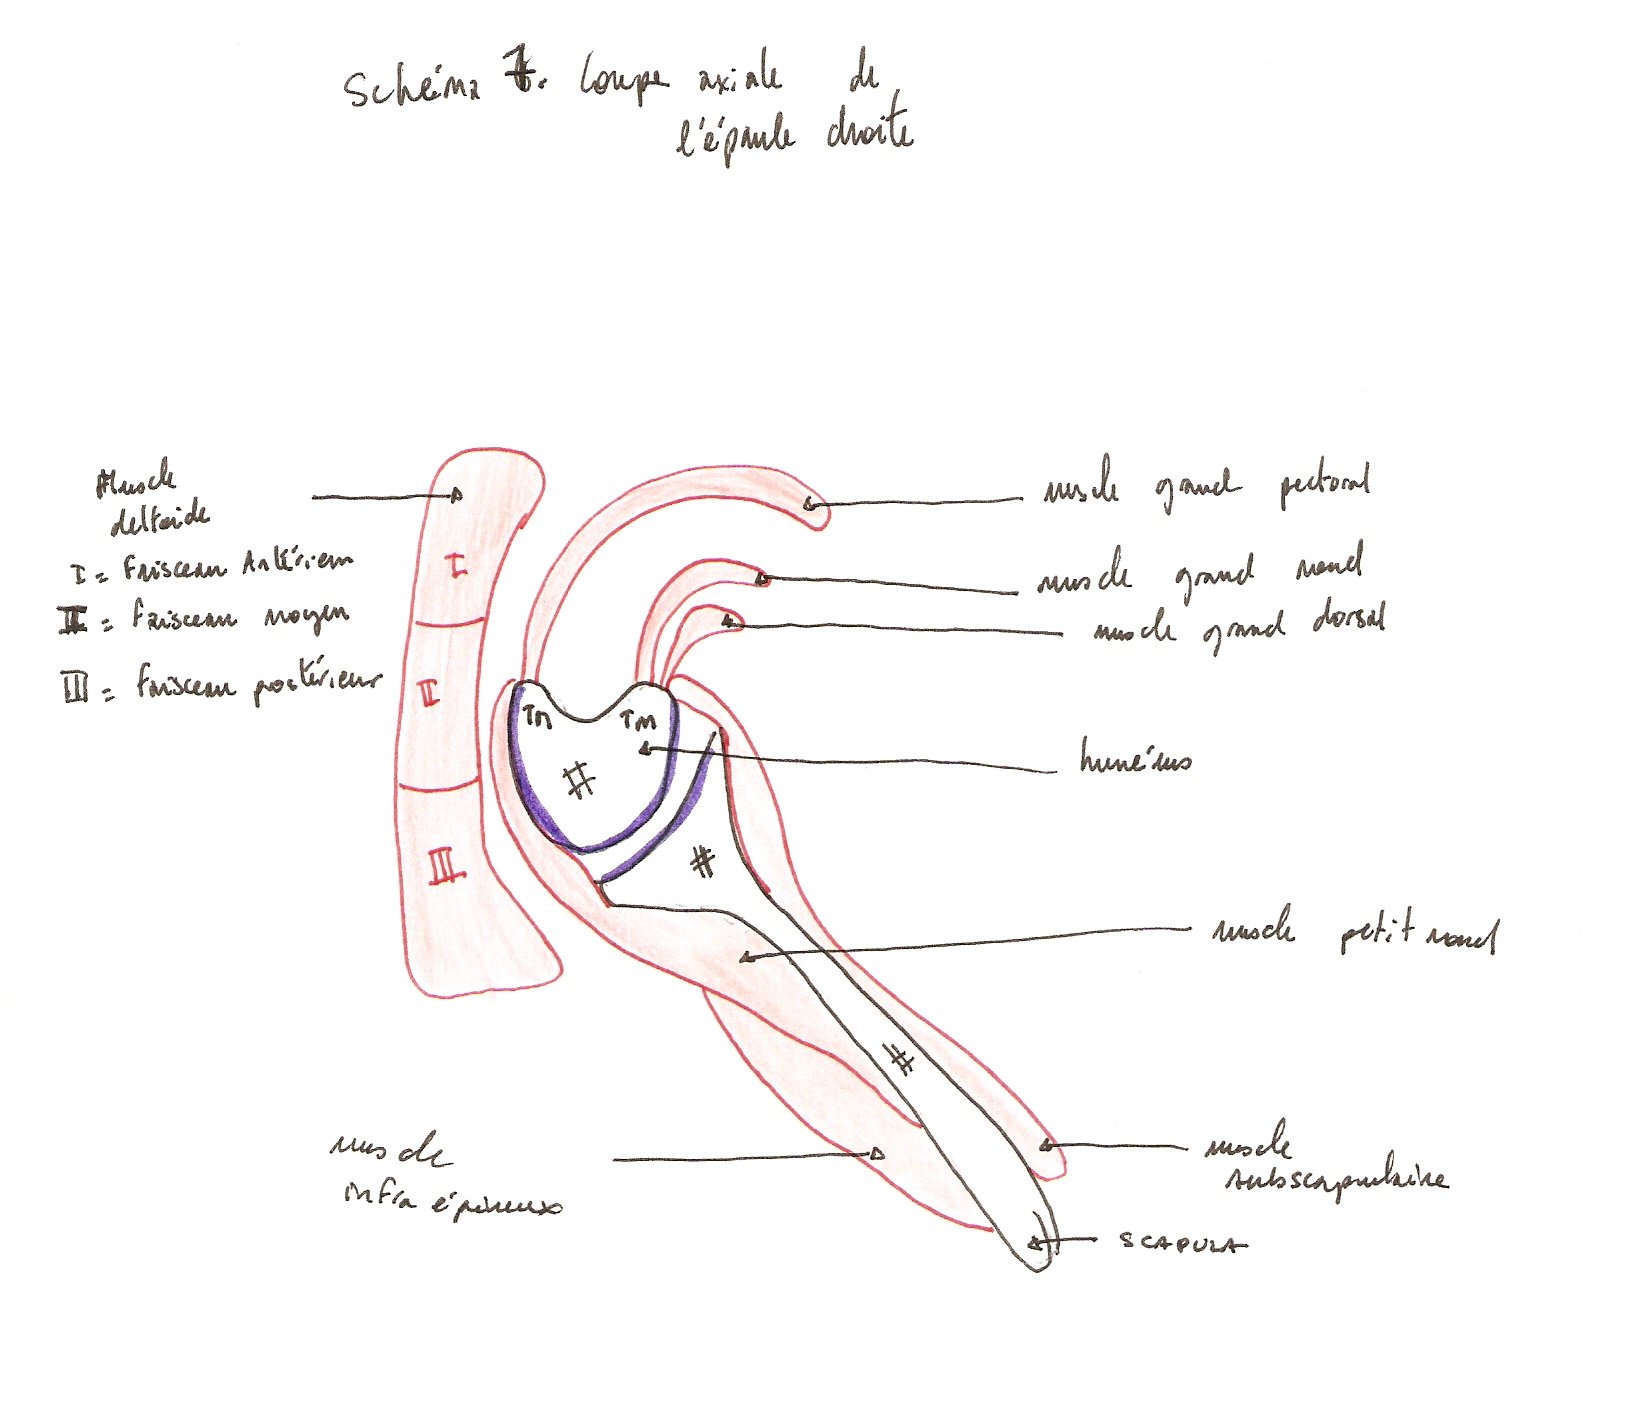 Schéma 7. Coupe axiale de
l'épaule droite
Muscle
deltoïde
I = Faisceau Antérieur
II = Faisceau moyen
III = Faisceau postérieur
I
II
III
muscle grand pectoral
muscle grand rond
muscle grand dorsal
TM
Tm
humérus
#
#
muscle petit rond
#
muscle
infra épineux
muscle
subscapulaire
SCAPULA